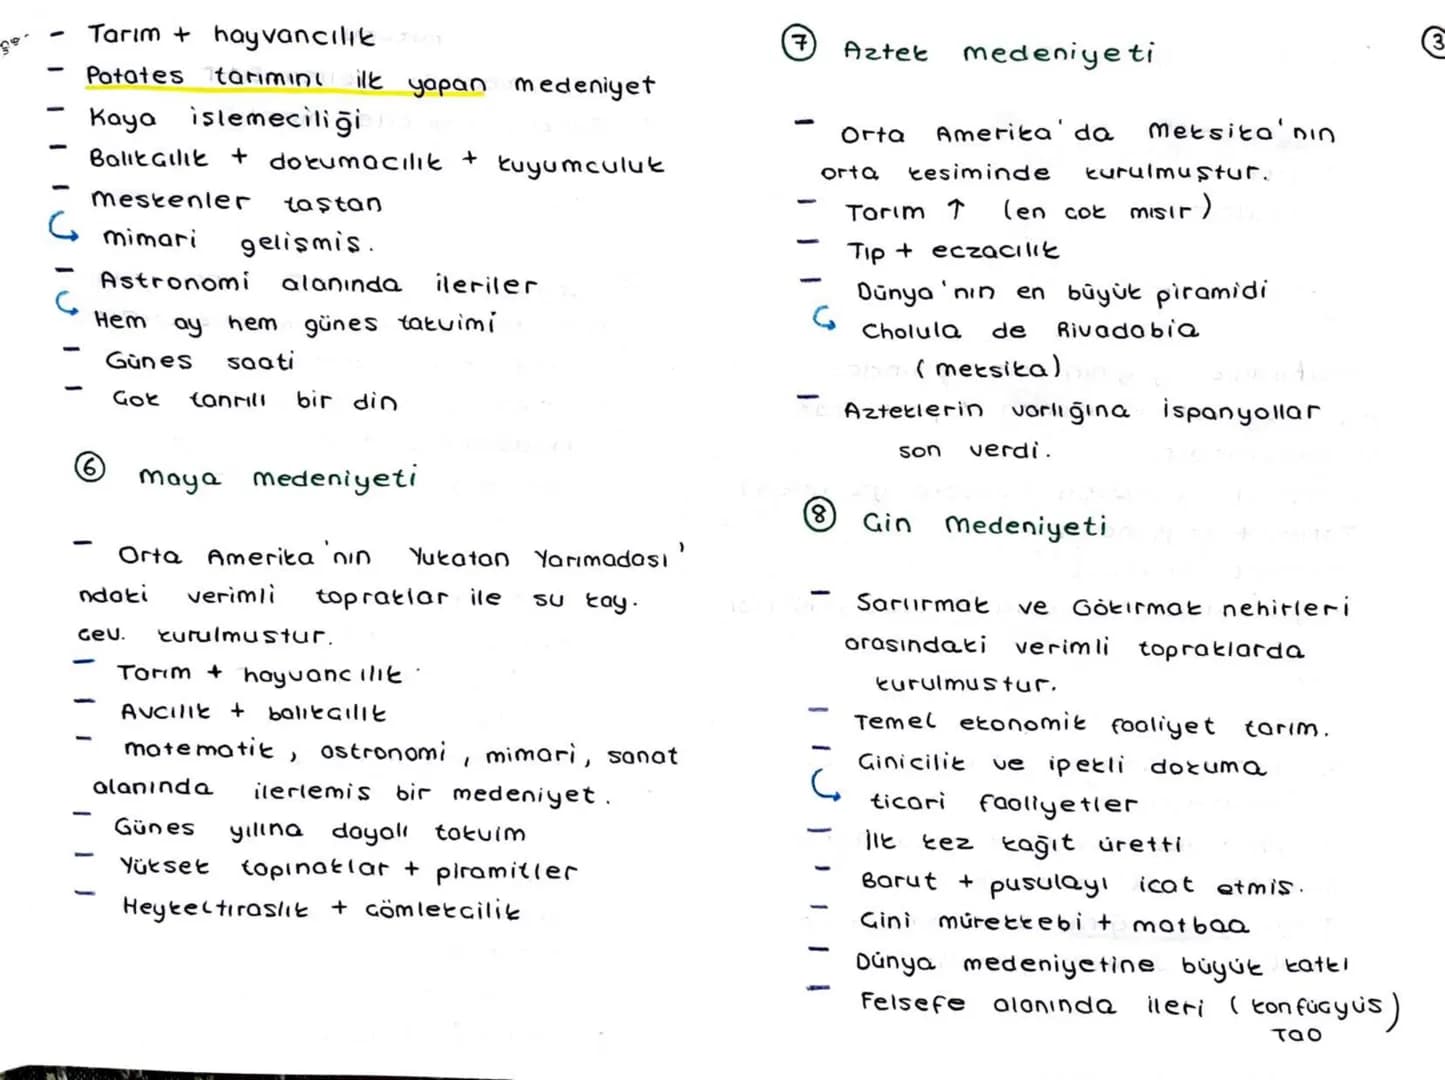 - Tarım + hayvancılık
- Patates tarımını ilk yapan medeniyet
- Kaya işlemeciliği
- Balıkçılık + dokumacılık + kuyumculuk
- meskenler taştan
mimari gelişmiş.
- Astronomi alanında ileriler
Hem ay hem güneş takvimi
- Güneş saati
- Çok tanrılı bir din
6 maya medeniyeti
- Orta Amerika'nın Yukatan Yarımadası'
ndaki verimli topraklar ile su kay.
çev. kurulmuştur.
- Tarım + hayvancılık
- Avcılık + balıkçılık
- matematik, astronomi, mimari, sanat
alanında ilerlemiş bir medeniyet.
- Güneş yılına dayalı takvim
- Yüksek tapınaklar + piramitler
- Heykeltıraşlık + çömlekçilik
7 Aztek medeniyeti
- Orta Amerika'da Meksika'nın
orta kesiminde kurulmuştur.
- Tarım ↑ (en çok mısır)
- Tıp + eczacılık
- Dünya'nın en büyük piramidi
Cholula de Rivadabia
(meksika)
- Azteklerin varlığına İspanyollar
son verdi.
8 Çin Medeniyeti
- Sarıırmak ve Gökırmak nehirleri
arasındaki verimli topraklarda
kurulmuştur.
- Temel ekonomik faaliyet tarım.
- Çinicilik ve ipekli dokuma
ticari faaliyetler
- İlk kez kağıt üretti
- Barut + pusulayı icat etmiş.
- Çini mürekkebi + matbaa
- Dünya medeniyetine büyük katkı
- Felsefe alanında ileri (konfüçyüs)
TAO
3